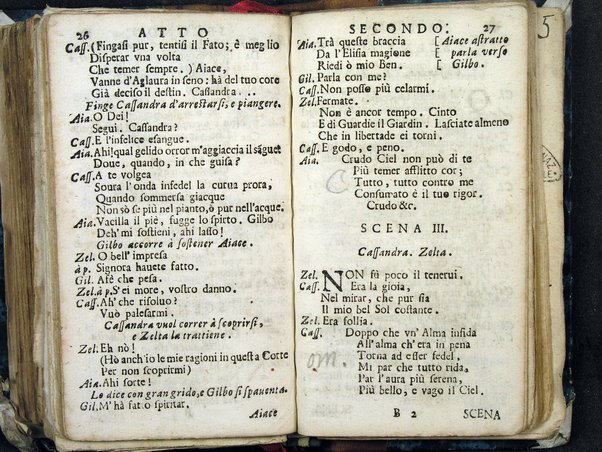 26 ATTO
Cass. (Fingasi pur, tentisi il Fato; è meglio
Disperar vna volta
Che temer sempre.) Aiace,
Vanne d'Aglaura in seno: hà del tuo core
Già deciso il destin. Cassandra...
Finge Cassandra d'arrestarsi, e piangere.
Aia. O Dei!
Segui. Cassandra?
Cass. E l'infelice esangue.
Aia. Ahi! qual gelido orror m'agghiaccia il sägue
Doue, quando, in che guisa?
Cass. A te volgea
Soura l'onda infedel la curua prora,
Quando sommersa giacque
Non sò se più nel pianto, ò pur nell'acque.
Aia. Vacilla il piè, fugge lo spirto. Gilbo
Deh' mi sostieni, ahi lasso!
Gilbo accorre à sostener Aiace.
Zel. O bell' impresa
à p. Signora hauete fatto.
Gil. Afè che pesa.
Zel. à p. S'ei more, vostro danno.
Cass. Ah' che risoluo?
Vuò palesarmi.
Cassandra vuol correr à scoprirsi,
e Zelta la trattiene.
Zel. Eh nò!
(Hò anch'io le mie ragioni in questa Corte
Per non scoprirmi)
Aia. Ahi sorte!
Lo dice con gran grido, e Gilbo si spauenta.
Gil. M'hà fatto spiritar.
Aiace
SECONDO. 27
Aia. Trà queste braccia [ Aiace astratto
Da l'Elisia magione [ parla verso
Riedi ò mio Ben. [ Gilbo.
Gil. Parla con me?
Cass. Non posso più celarmi.
Zel. Fermate.
Non è ancor tempo. Cinto
E di Guardie il Giardin. Lasciate almeno
Che in libertade ei torni.
Cass. E godo, e peno.
Aia. Crudo Ciel non può di te
Più temer afflitto cor;
Tutto, tutto contro me
Consumato è il tuo rigor.
Crudo &c.
SCENA III.
Cassandra. Zelta.
Zel. NON fù poco il tenerui.
Cass. Era la gioia,
Nel mirar, che pur sia
Il mio bel Sol costante.
Zel. Era follia.
Cass. Doppo che vn' Alma infida
All'alma ch'era in pena
Torna ad esser fedel,
Mi par che tutto rida,
Par l'aura più serena,
Più bello, e vago il Ciel.
B 2 SCENA
5